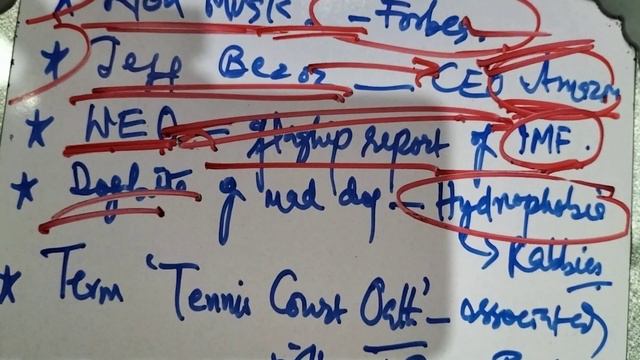 Musk. - Forbes.
* Jeff Bezos — CEO Amazon
* WEO - flagship report of IMF.
* Dogbite of mad dog - Hydrophobia
↳ Rabbies
* Term 'Tennis Court Oath' - associated